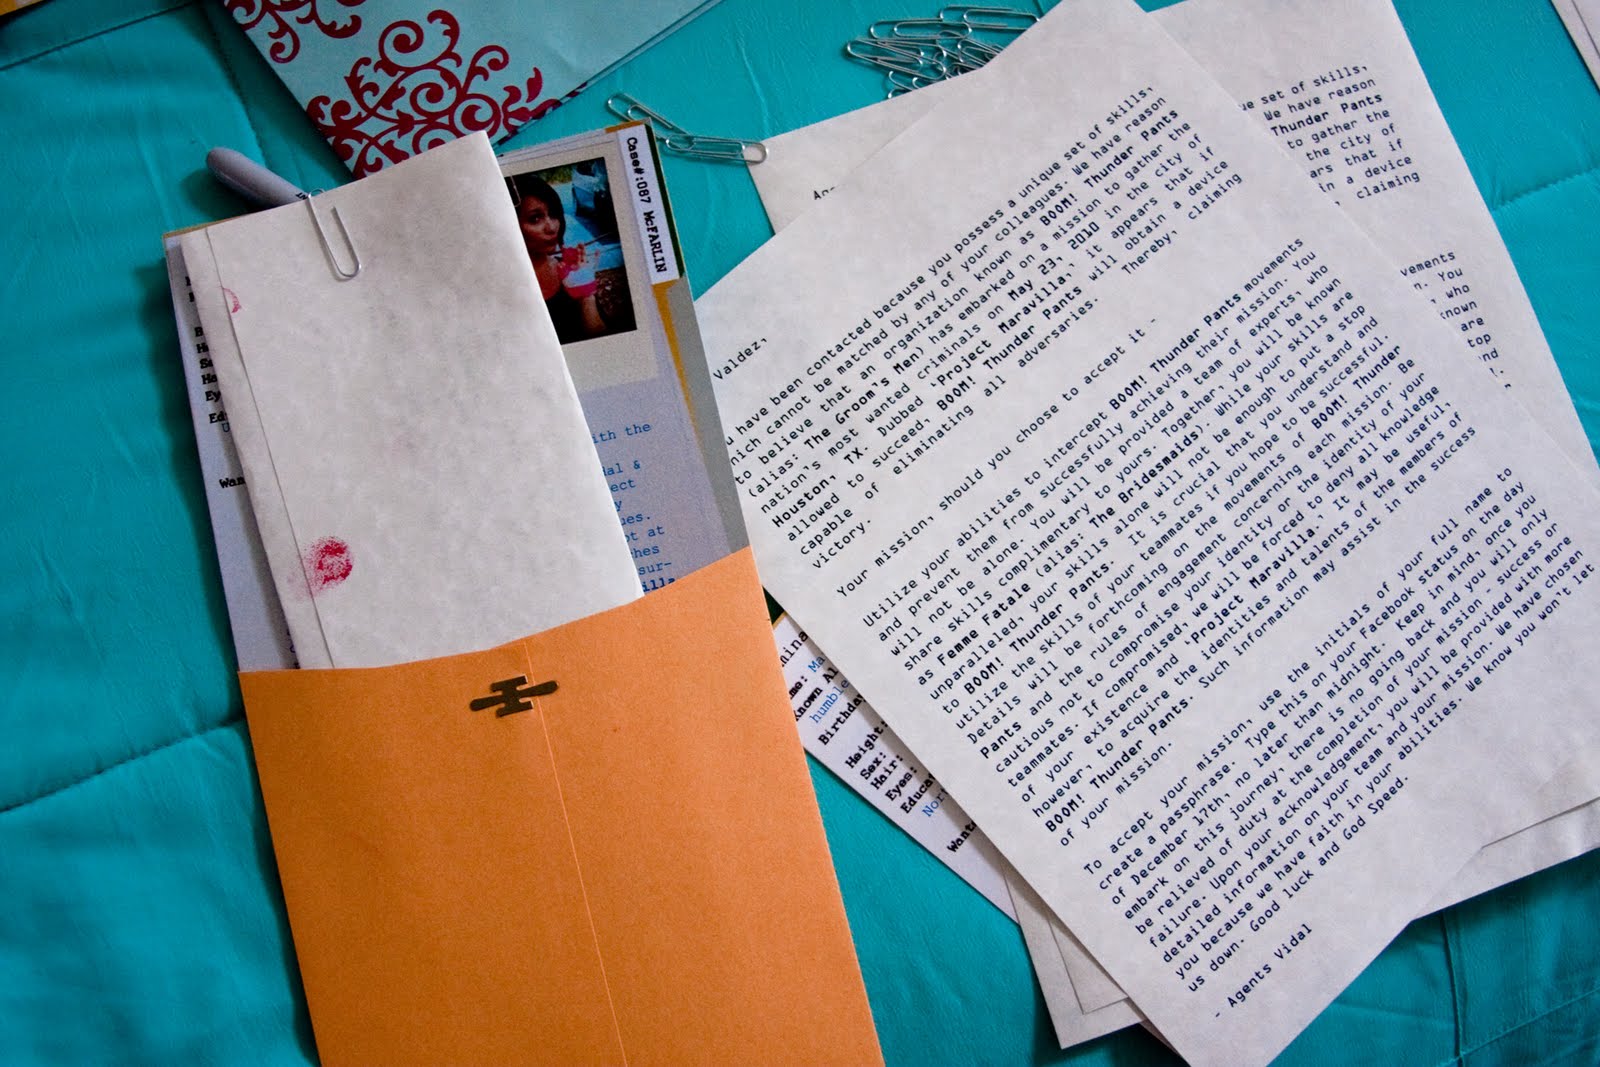 Case#:087 McFARLIN
ith the
al &
ect
y
ues.
ot at
hes
sur-
illa
Valdez,
u have been contacted because you possess a unique set of skills,
hich cannot be matched by any of your colleagues. We have reason
to believe that an organization known as BOOM! Thunder Pants
(alias: The Groom's Men) has embarked on a mission to gather the
nation's most wanted criminals on May 23, 2010 in the city of
Houston, TX. Dubbed 'Project Maravilla,' it appears that if
allowed to succeed, BOOM! Thunder Pants will obtain a device
capable of eliminating all adversaries. Thereby, claiming
victory.
Your mission, should you choose to accept it -
Utilize your abilities to intercept BOOM! Thunder Pants movements
and prevent them from successfully achieving their mission. You
will not be alone. You will be provided a team of experts, who
share skills complimentary to yours. Together, you will be known
as Femme Fatale (alias: The Bridesmaids). While your skills are
unparalleled, your skills alone will not be enough to put a stop
to BOOM! Thunder Pants. It is crucial that you understand and
utilize the skills of your teammates if you hope to be successful.
Details will be forthcoming on the movements of BOOM! Thunder
Pants and the rules of engagement concerning each mission. Be
cautious not to compromise your identity or the identity of your
teammates. If compromised, we will be forced to deny all knowledge
of your existence and 'Project Maravilla.' It may be useful,
however, to acquire the identities and talents of the members of
BOOM! Thunder Pants. Such information may assist in the success
of your mission.
To accept your mission, use the initials of your full name to
create a passphrase. Type this on your Facebook status on the day
of December 17th, no later than midnight. Keep in mind, once you
embark on this journey, there is no going back and you will only
be relieved of duty at the completion of your mission - success or
failure. Upon your acknowledgement, you will be provided with more
detailed information on your team and your mission. We have chosen
you because we have faith in your abilities. We know you won't let
us down. Good luck and God Speed.
- Agents Vidal
ue set of skills,
We have reason
Thunder Pants
to gather the
the city of
ars that if
in a device
, claiming
vements
n. You
, who
nown
are
top
nd
mina
me: Ma
known Al
humble
Birthda
Height:
Sex:
Hair:
Eyes:
Educat
Nor
Want